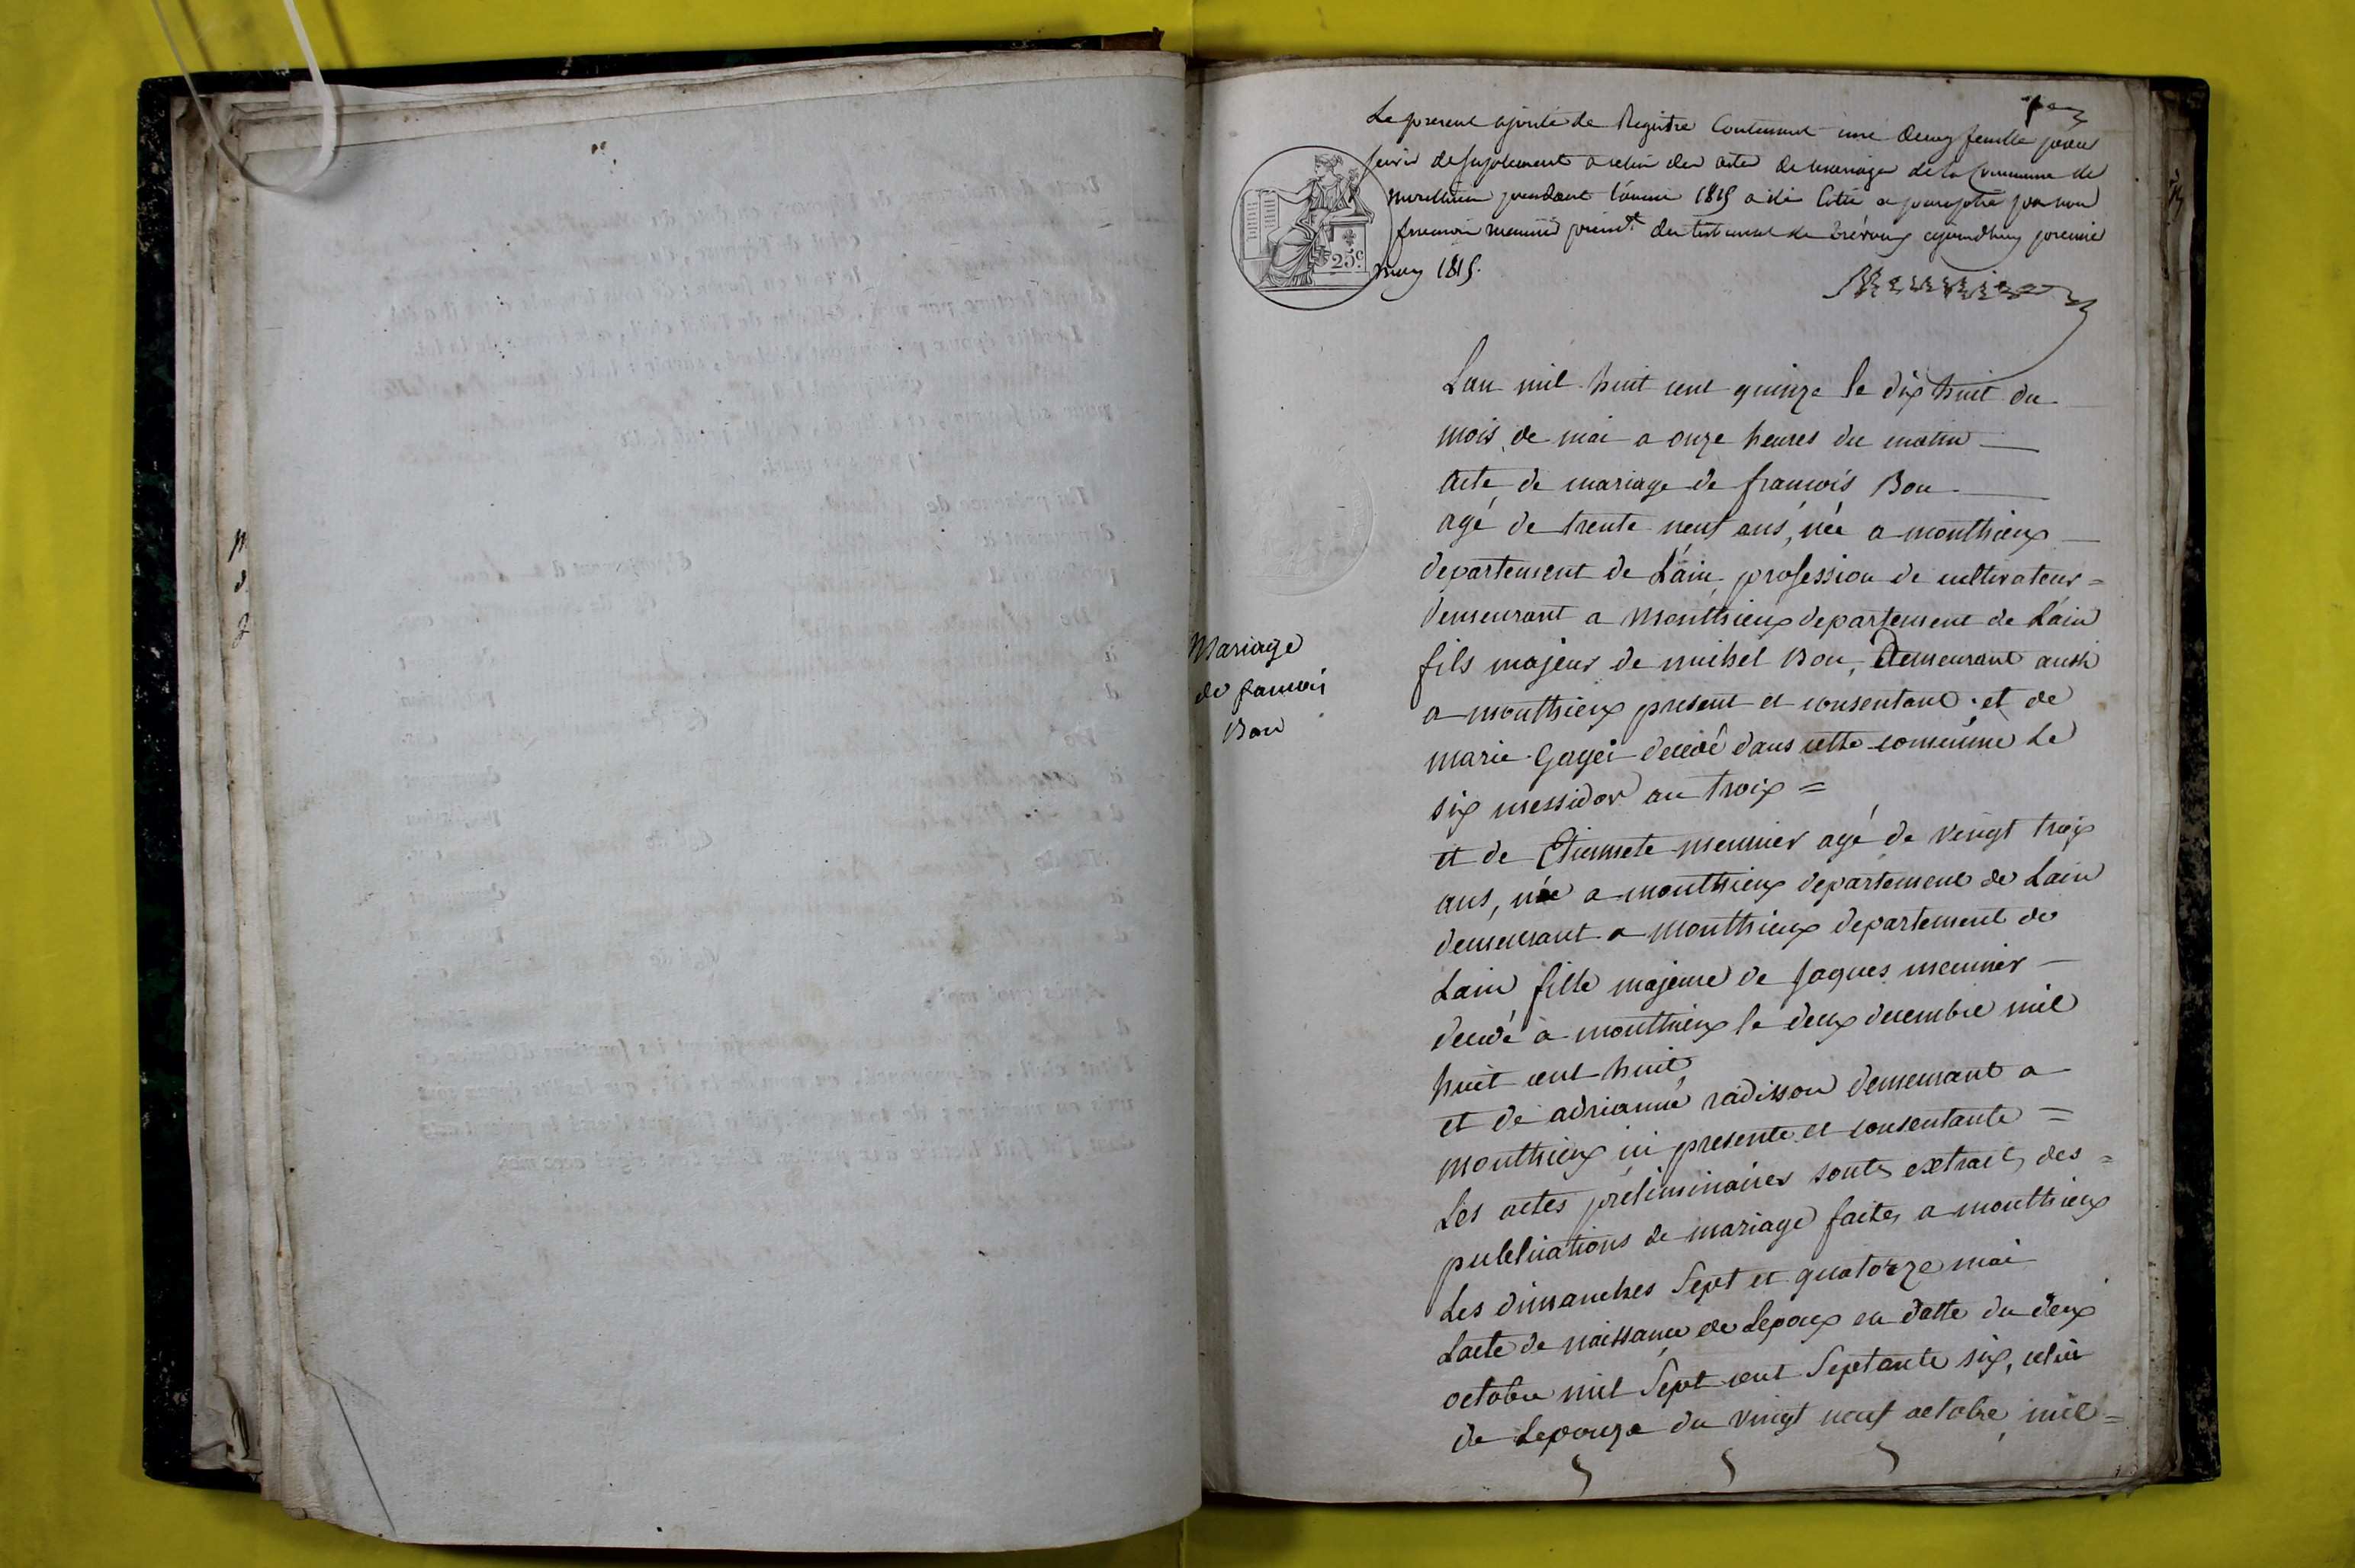 Le present ajouté de Registre Contenant une deux feuille pour
servir de suplement a celui des actes de mariage de la Commune de
monthieu pendant l'année 1815 a été Coté a paraphé par nous
president du tribunal de trévoux aujourdhuy premier
may 1815.
25c
Mariage
de francois
Bou
Lan mil huit cent quinze le dix huit du
mois de mai a onze heures du matin
acte de mariage de francois Bou
agé de trente neuf ans, née a monthieux
departement de Lain profession de cultivateur =
demeurant a Monthieux departement de Lain
fils majeur de michel Bou, demeurant aussi
a monthieux present et consentant et de
marie Gayei decedé dans cette commune le
six messidor an troix =
et de Etiennete meunier agé de vingt troix
ans, née a monthieux departement de Lain
demeurant a monthieux departement de
Lain fille majeure de Jaques meunier
decedé a monthieux le deux decembre mil
huit cent huit
et de adrianne radisson demeurant a
monthieux ici presente et consentante =
Les actes préliminaires sonts extraits des =
publications de mariage faites a monthieux
Les dimanches Sept et quatorze mai
Lacte de naissance de Lepoux en datte du deux
octobre mil Sept cent Septante six, celui
de Lepouze du vingt neuf octobre mil =